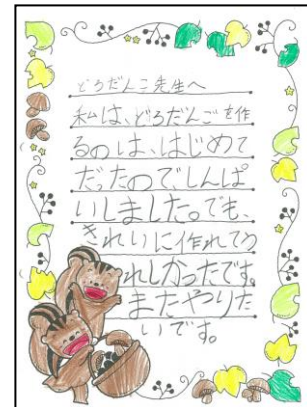 どろだんご先生へ
私は、どろだんごを作
るのは、はじめて
だったので、しんぱ
いしました。でも、
きれいに作れてう
れしかったです。
またやりた
いです。